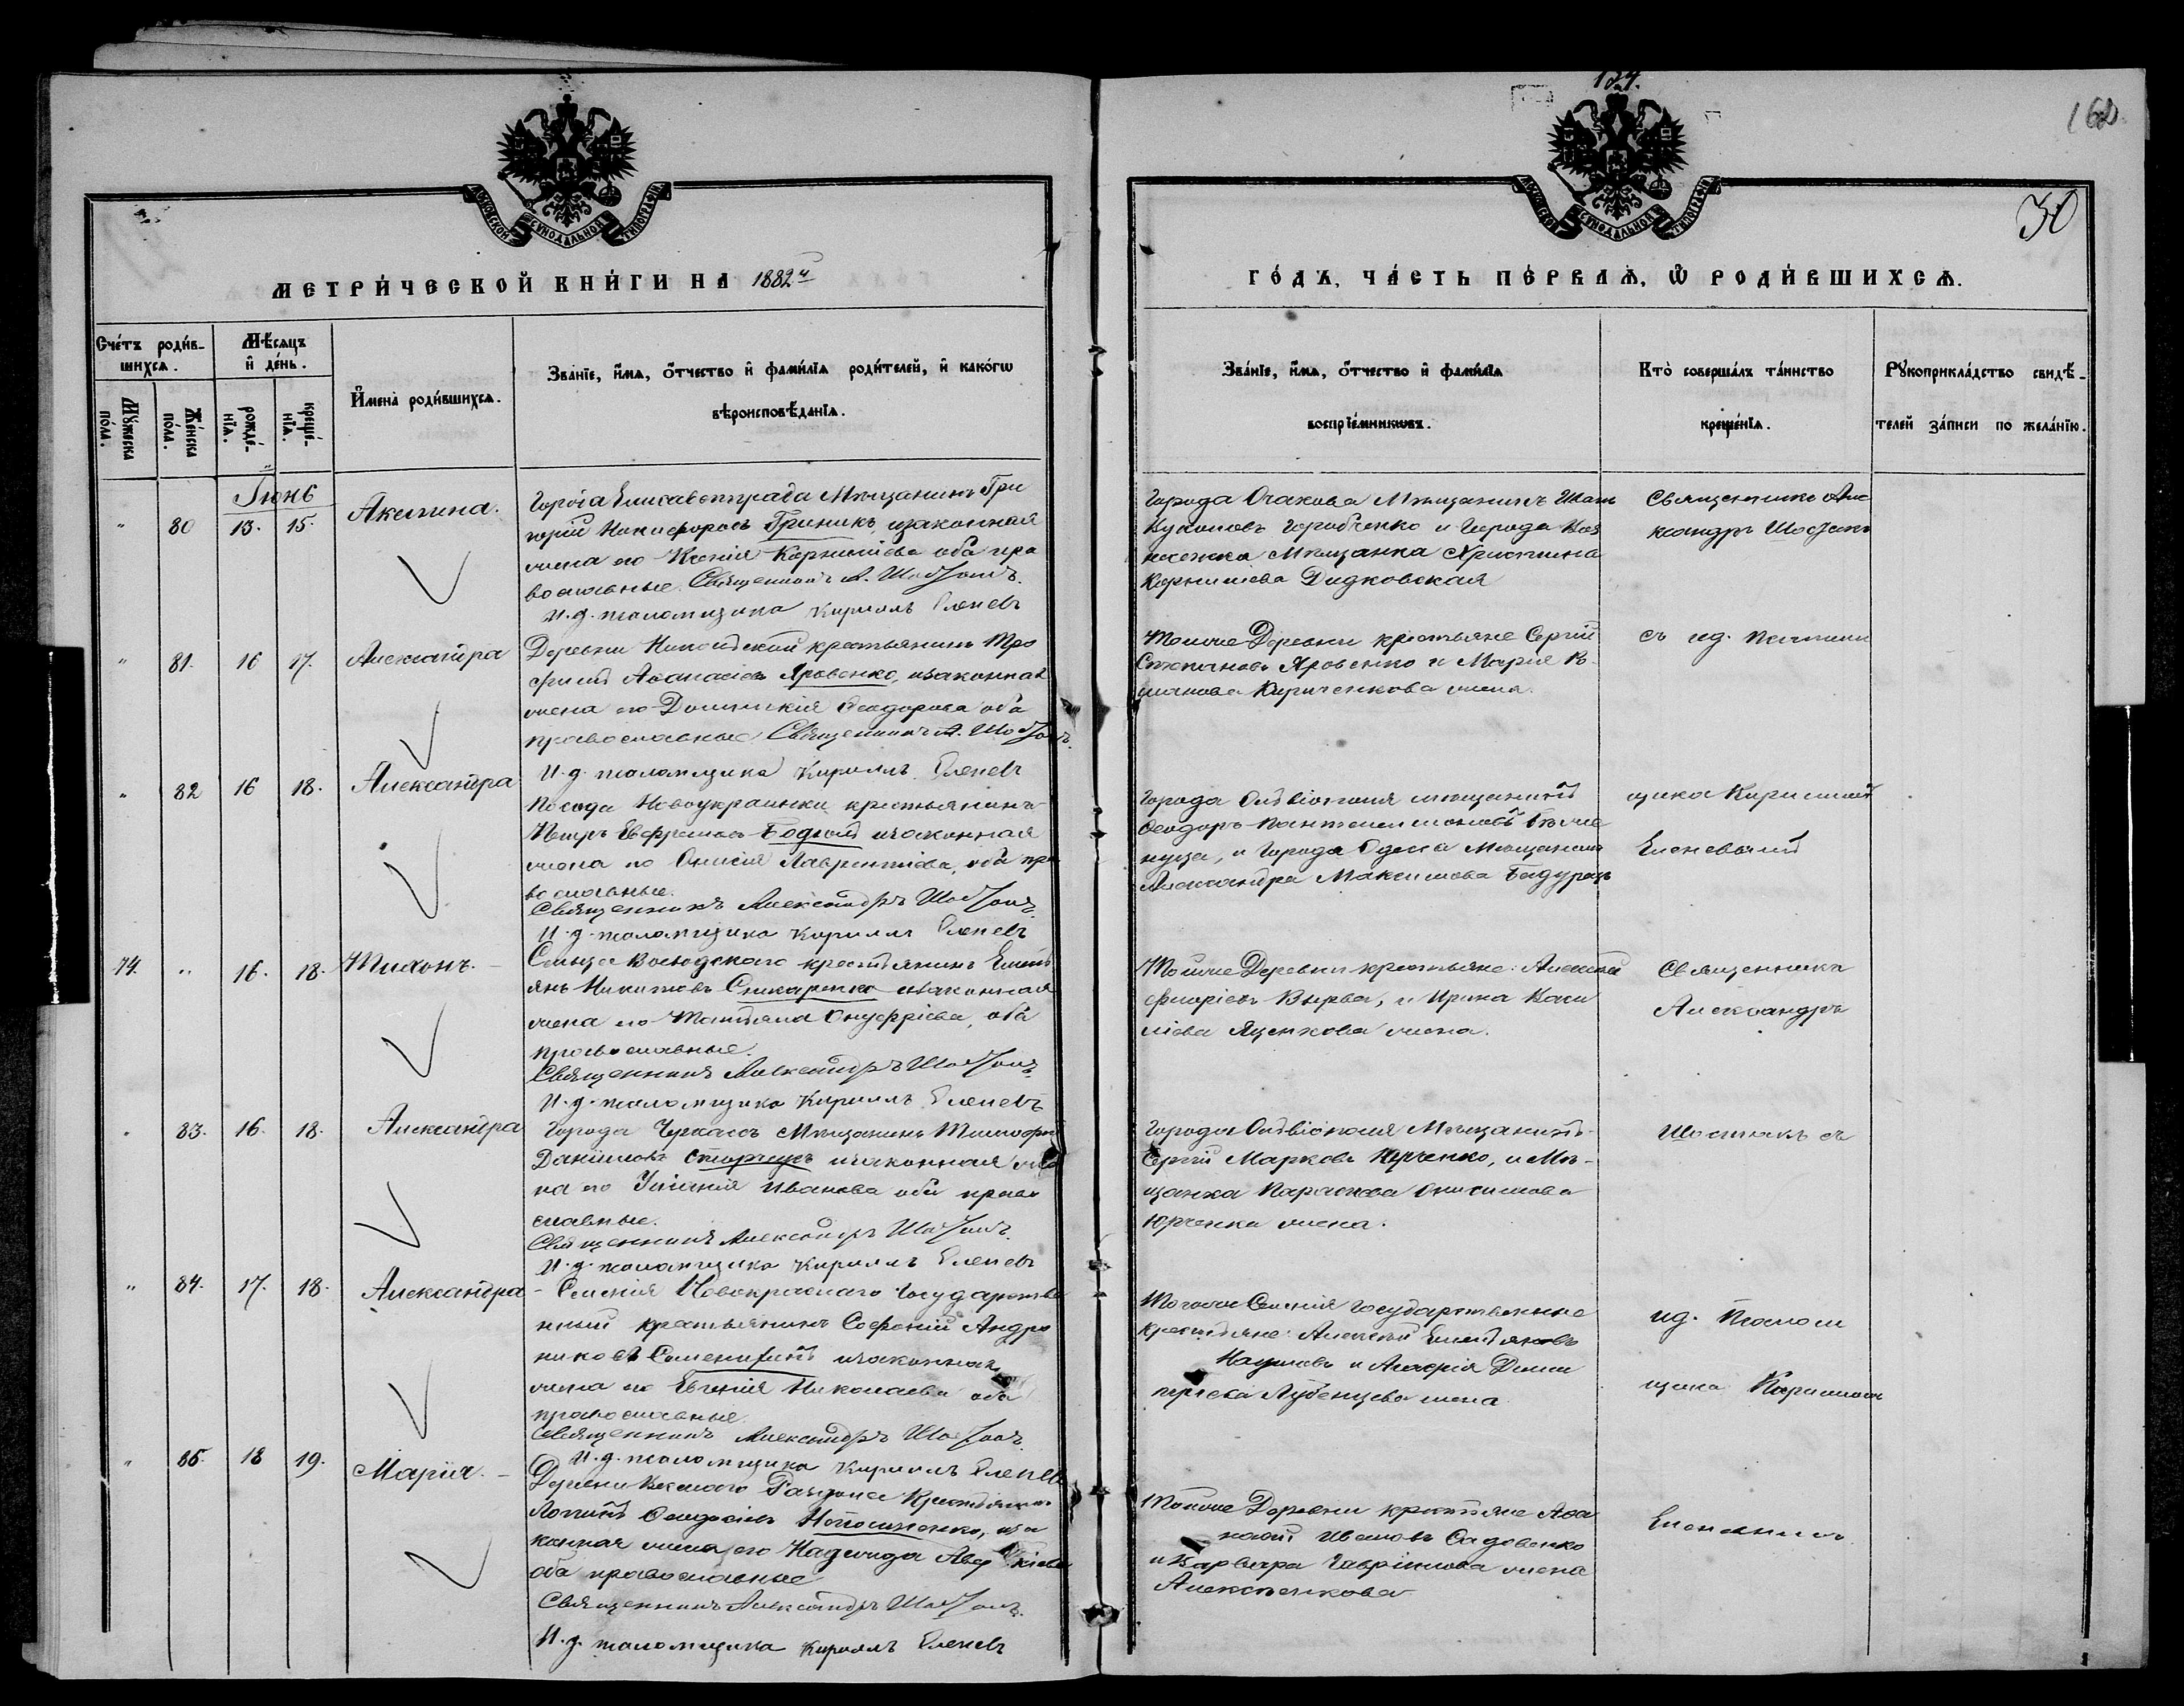 124.
162
30
МОСКОВСКОЙ СУНОДАЛЬНОЙ ТИПОГРАФІИ
МОСКОВСКОЙ СУНОДАЛЬНОЙ ТИПОГРАФІИ
МЕТРИ́ЧЕСКОЙ КНИ́ГИ НА 1882й
ГО́ДЪ, ЧА́СТЬ ПЕ́РВАѦ, Ѿ РОДИ́ВШИХСѦ.
Сче́тъ роди́вшихсѧ.
Мꙋ́жеска по́ла.
Же́нска по́ла.
Мѣ́сѧцъ и҆ де́нь.
рожде́нїѧ.
креще́нїѧ.
И҆мена̀ роди́вшихсѧ.
Зва́нїе, и҆́мѧ, ѻ҆́тчество и҆ фами́лїѧ роди́телей, и҆ како́гѡ
вѣроисповѣ́данїѧ.
Зва́нїе, и҆́мѧ, ѻ҆́тчество и҆ фами́лїѧ
воспрїе́мникѡвъ.
Кто̀ соверша́лъ та́инство
креще́нїѧ.
Рꙋкоприкла́дство свидѣ́телей за́писи по жела́нїю.
Іюнь
" 80 13. 15. Акилина.
Города Елисаветграда Мѣщанинъ Гри
горій Никифоровъ Гриникъ, изаконная
жена его Ксенія Корнилієва оба пра
вославные. Священникъ А. Шостакъ.
И. д. псаломщика Кириллъ Еленевъ
Города Очакова Мѣщанинъ Иванъ
и Города Воз
несенска Мѣщанка Христина
Корнилієва Дидковская
Священникъ Але
ксандръ Шостакъ
" 81. 16 17. Александра
Деревни крестьянинъ Тро
фимъ Аѳанасіевъ Яровенко, изаконная
жена его Домникія Ѳеодорова оба
православные Священникъ А. Шостакъ.
И. д. псаломщика Кириллъ Еленевъ
Тойже Деревни крестьяне Сергій
Степановъ Яровенко и Марія
Кириченкова жена.
съ ид. псалом
" 82 16 18. Александра
Посада Новоукраинки крестьянинъ
Петръ Евфремовъ Бодный изаконная
жена его Онисія Лаврентіева, оба пра
вославные.
Священникъ Александръ Шостакъ.
И. д. псаломщика Кириллъ Еленевъ
Города Овидіополя мѣщанинъ
Ѳеодоръ Пантелеимоновъ
и Города Одесса Мѣщанка
Александра Максимова
щика Кириллъ
Еленевый
74. " 16. 18. Тихонъ.
крестьянинъ Емель
янъ Никитовъ изаконная
жена его Татьяна Онуфріева, оба
православные.
Священникъ Александръ Шостакъ.
И. д. псаломщика Кириллъ Еленевъ
Тойже Деревни крестьяне: Алексѣй
Вырва, и Ирина Васи
ліева Яценкова жена.
Священникъ
Александръ
" 83. 16. 18. Александра
Города Черкасъ Мѣщанинъ Тимоѳей
Даніиловъ изаконная же
на его Уліанія Иванова оба право
славные.
Священникъ Александръ Шостакъ.
И. д. псаломщика Кириллъ Еленевъ
Города Овидіополя Мѣщанинъ
Сергій Марковъ Юрченко, и Мѣ-
щанка Параскева Онисимова
Юрченка жена.
Шостакъ съ
" 84. 17. 18. Александра
Селенія Новокраснаго Государстве
нный крестьянинъ Софоній Андро
никовъ изаконная
жена его Евгенія Николаева оба
православные.
Священникъ Александръ Шостакъ.
И. д. псаломщика Кириллъ Еленевъ
Тогоже Селенія Государственные
крестьяне: Алексѣй Емельяновъ
Наумовъ и Агафія Дими
тріева Лубенцева жена
ид. Псалом
щика Кирилломъ
" 85. 18 19. Марія.
Деревни Веселаго Раздола Крестьянинъ
Логинъ Ѳеодосіевъ иза
конная жена его Надежда
оба православные
Священникъ Александръ Шостакъ.
И. д. псаломщика Кириллъ Еленевъ
Тойже Деревни крестьяне Аѳа
насій Ивановъ Садовенко
и Варвара Гаврилова жена
Алексѣенкова
Еленевымъ